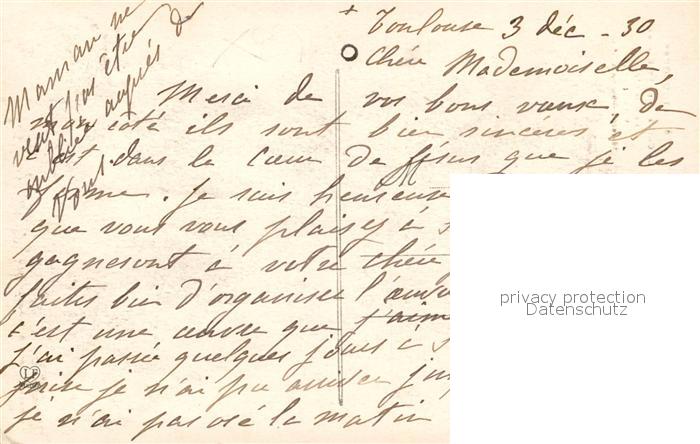 +
Toulouse 3 déc - 30
Chère Mademoiselle,
Merci de vos bons vœux, de
mon côté ils sont bien sincères et
c'est dans le cœur de Jésus que je les
forme. Je suis heureuse
que vous vous plaisez à
gagneront à votre chère
faites bien d'organiser l'
c'est une œuvre que j'aim
j'ai passé quelques jours à s
je n'ai pu
je n'ai pas osé le matin
Maman ne
veut pas être
oubliée auprès de
vous.
privacy protection
Datenschutz